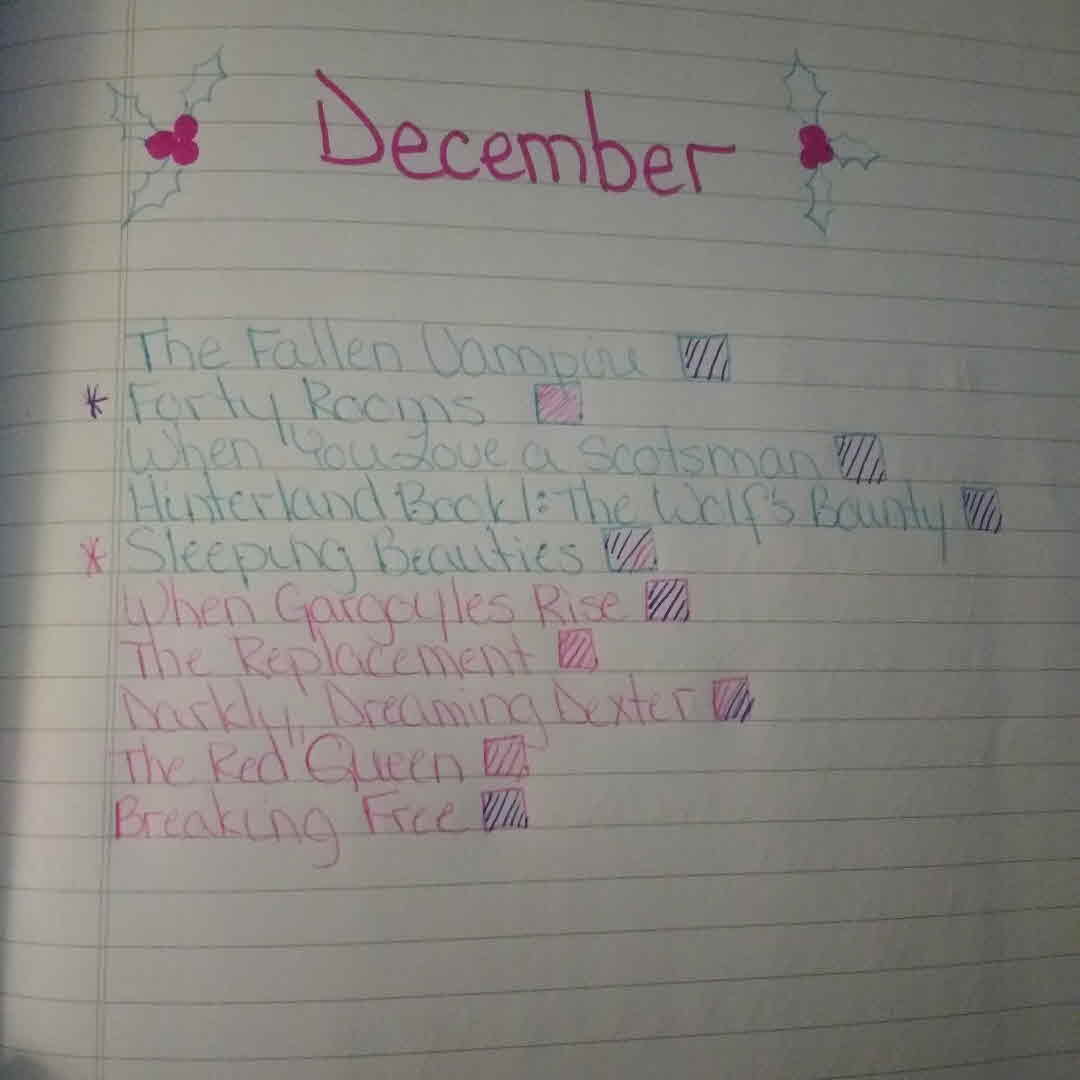 December
The Fallen Vampire
* Forty Rooms
When You Love a Scotsman
Hinterland Book 1: The Wolf's Bounty
* Sleeping Beauties
When Gargoyles Rise
The Replacement
Darkly, Dreaming Dexter
The Red Queen
Breaking Free